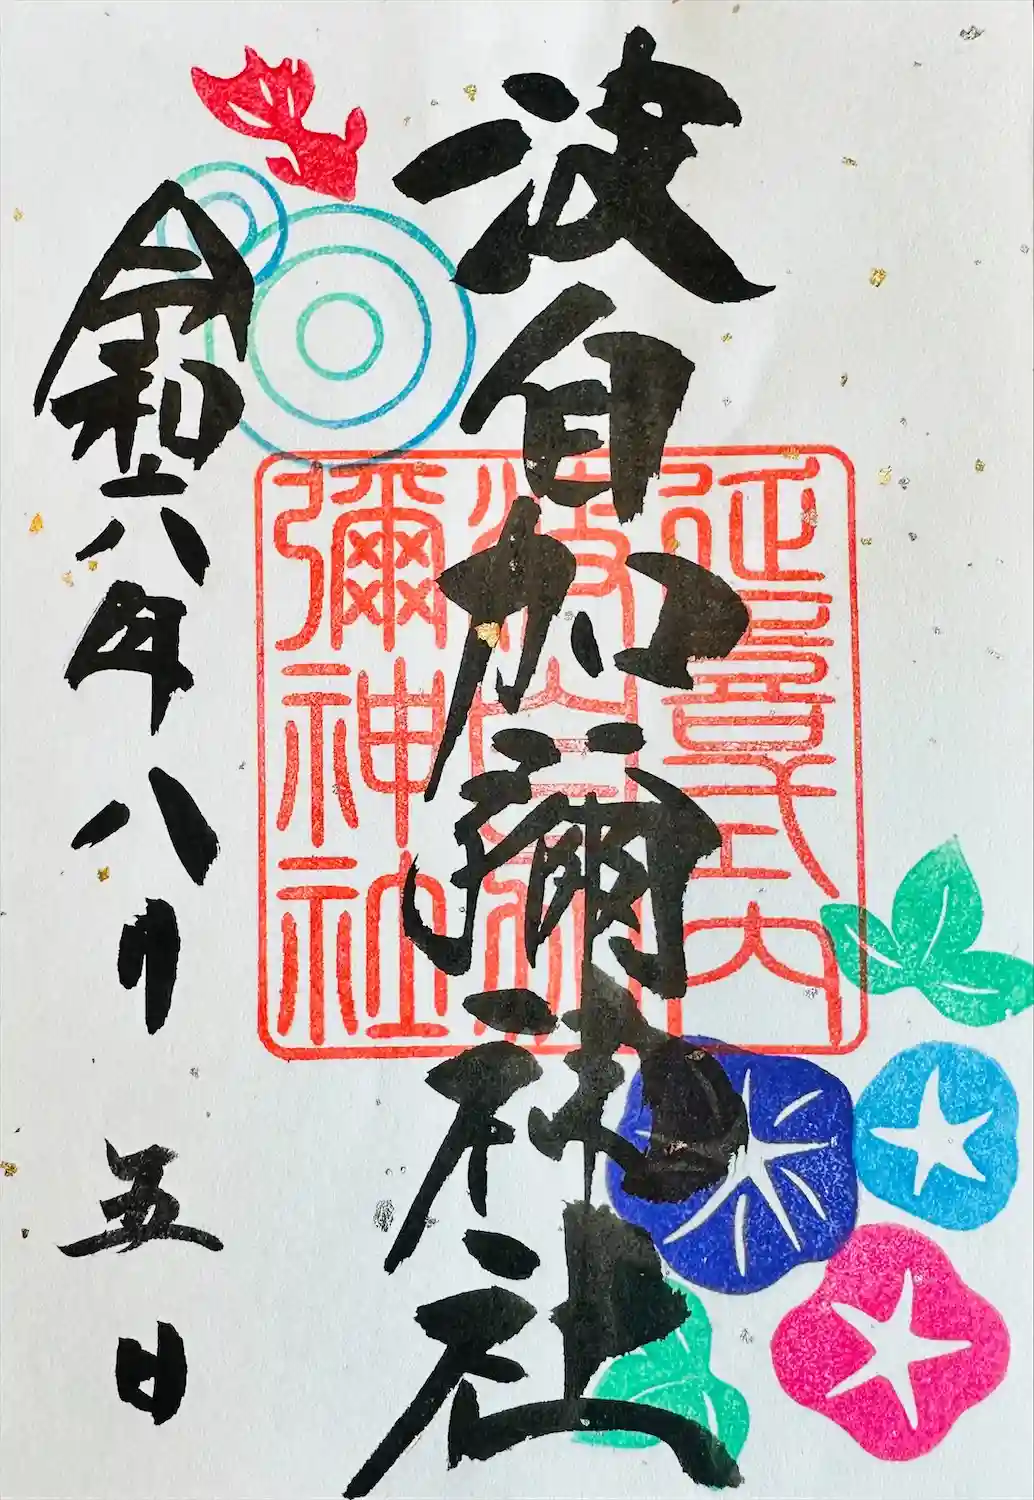 波自加彌神社
延喜式内
波自加
彌神社
令和六年八月五日